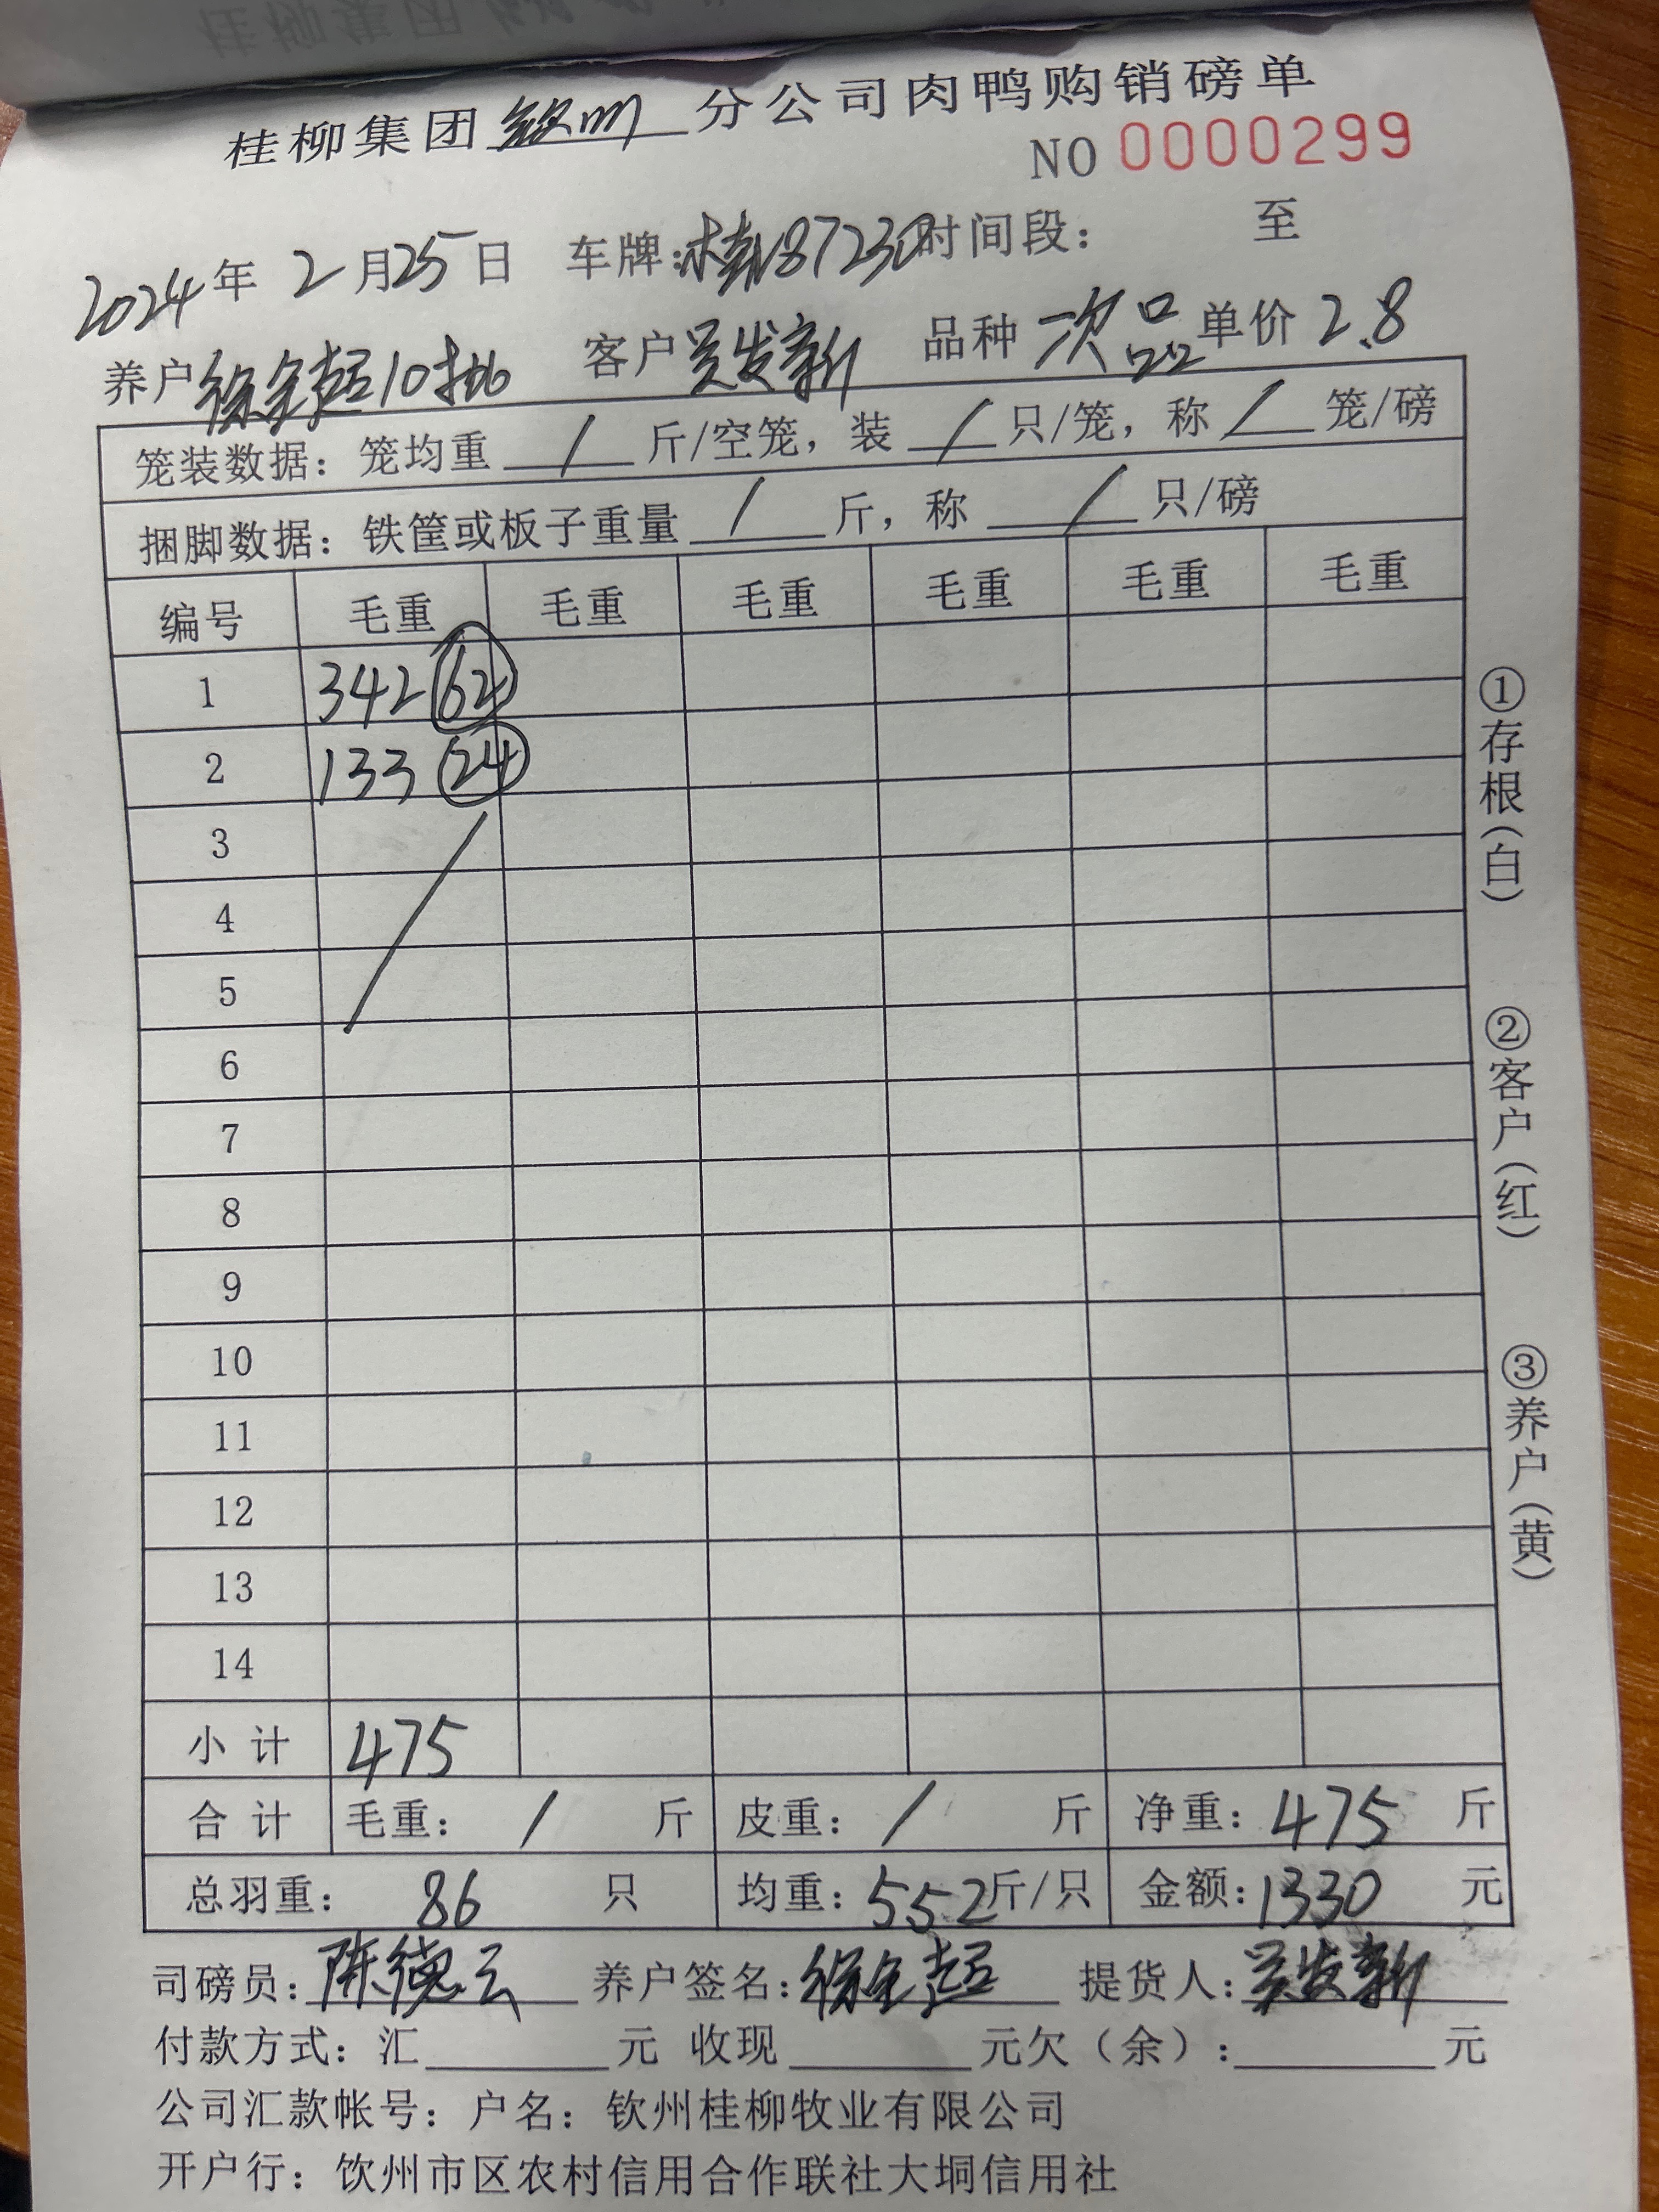 桂柳集团钦州分公司肉鸭购销磅单
NO 0000299
2024年 2月25日 车牌:桂N87230 时间段: 至
养户徐全超10批 客户吴发新 品种 次品 单价 2.8
笼装数据: 笼均重 / 斤/空笼, 装 / 只/笼, 称 / 笼/磅
捆脚数据: 铁筐或板子重量 / 斤, 称 / 只/磅
编号 毛重 毛重 毛重 毛重 毛重 毛重
1 342 62
2 133 24
3
4
5
6
7
8
9
10
11
12
13
14
小计 475
合计 毛重: / 斤 皮重: / 斤 净重: 475 斤
总羽重: 86 只 均重: 5.52斤/只 金额: 1330 元
司磅员: 陈德云 养户签名: 徐全超 提货人: 吴发新
付款方式: 汇 元 收现 元欠(余): 元
公司汇款帐号: 户名: 钦州桂柳牧业有限公司
开户行: 饮州市区农村信用合作联社大垌信用社
①存根(白)
②客户(红)
③养户(黄)